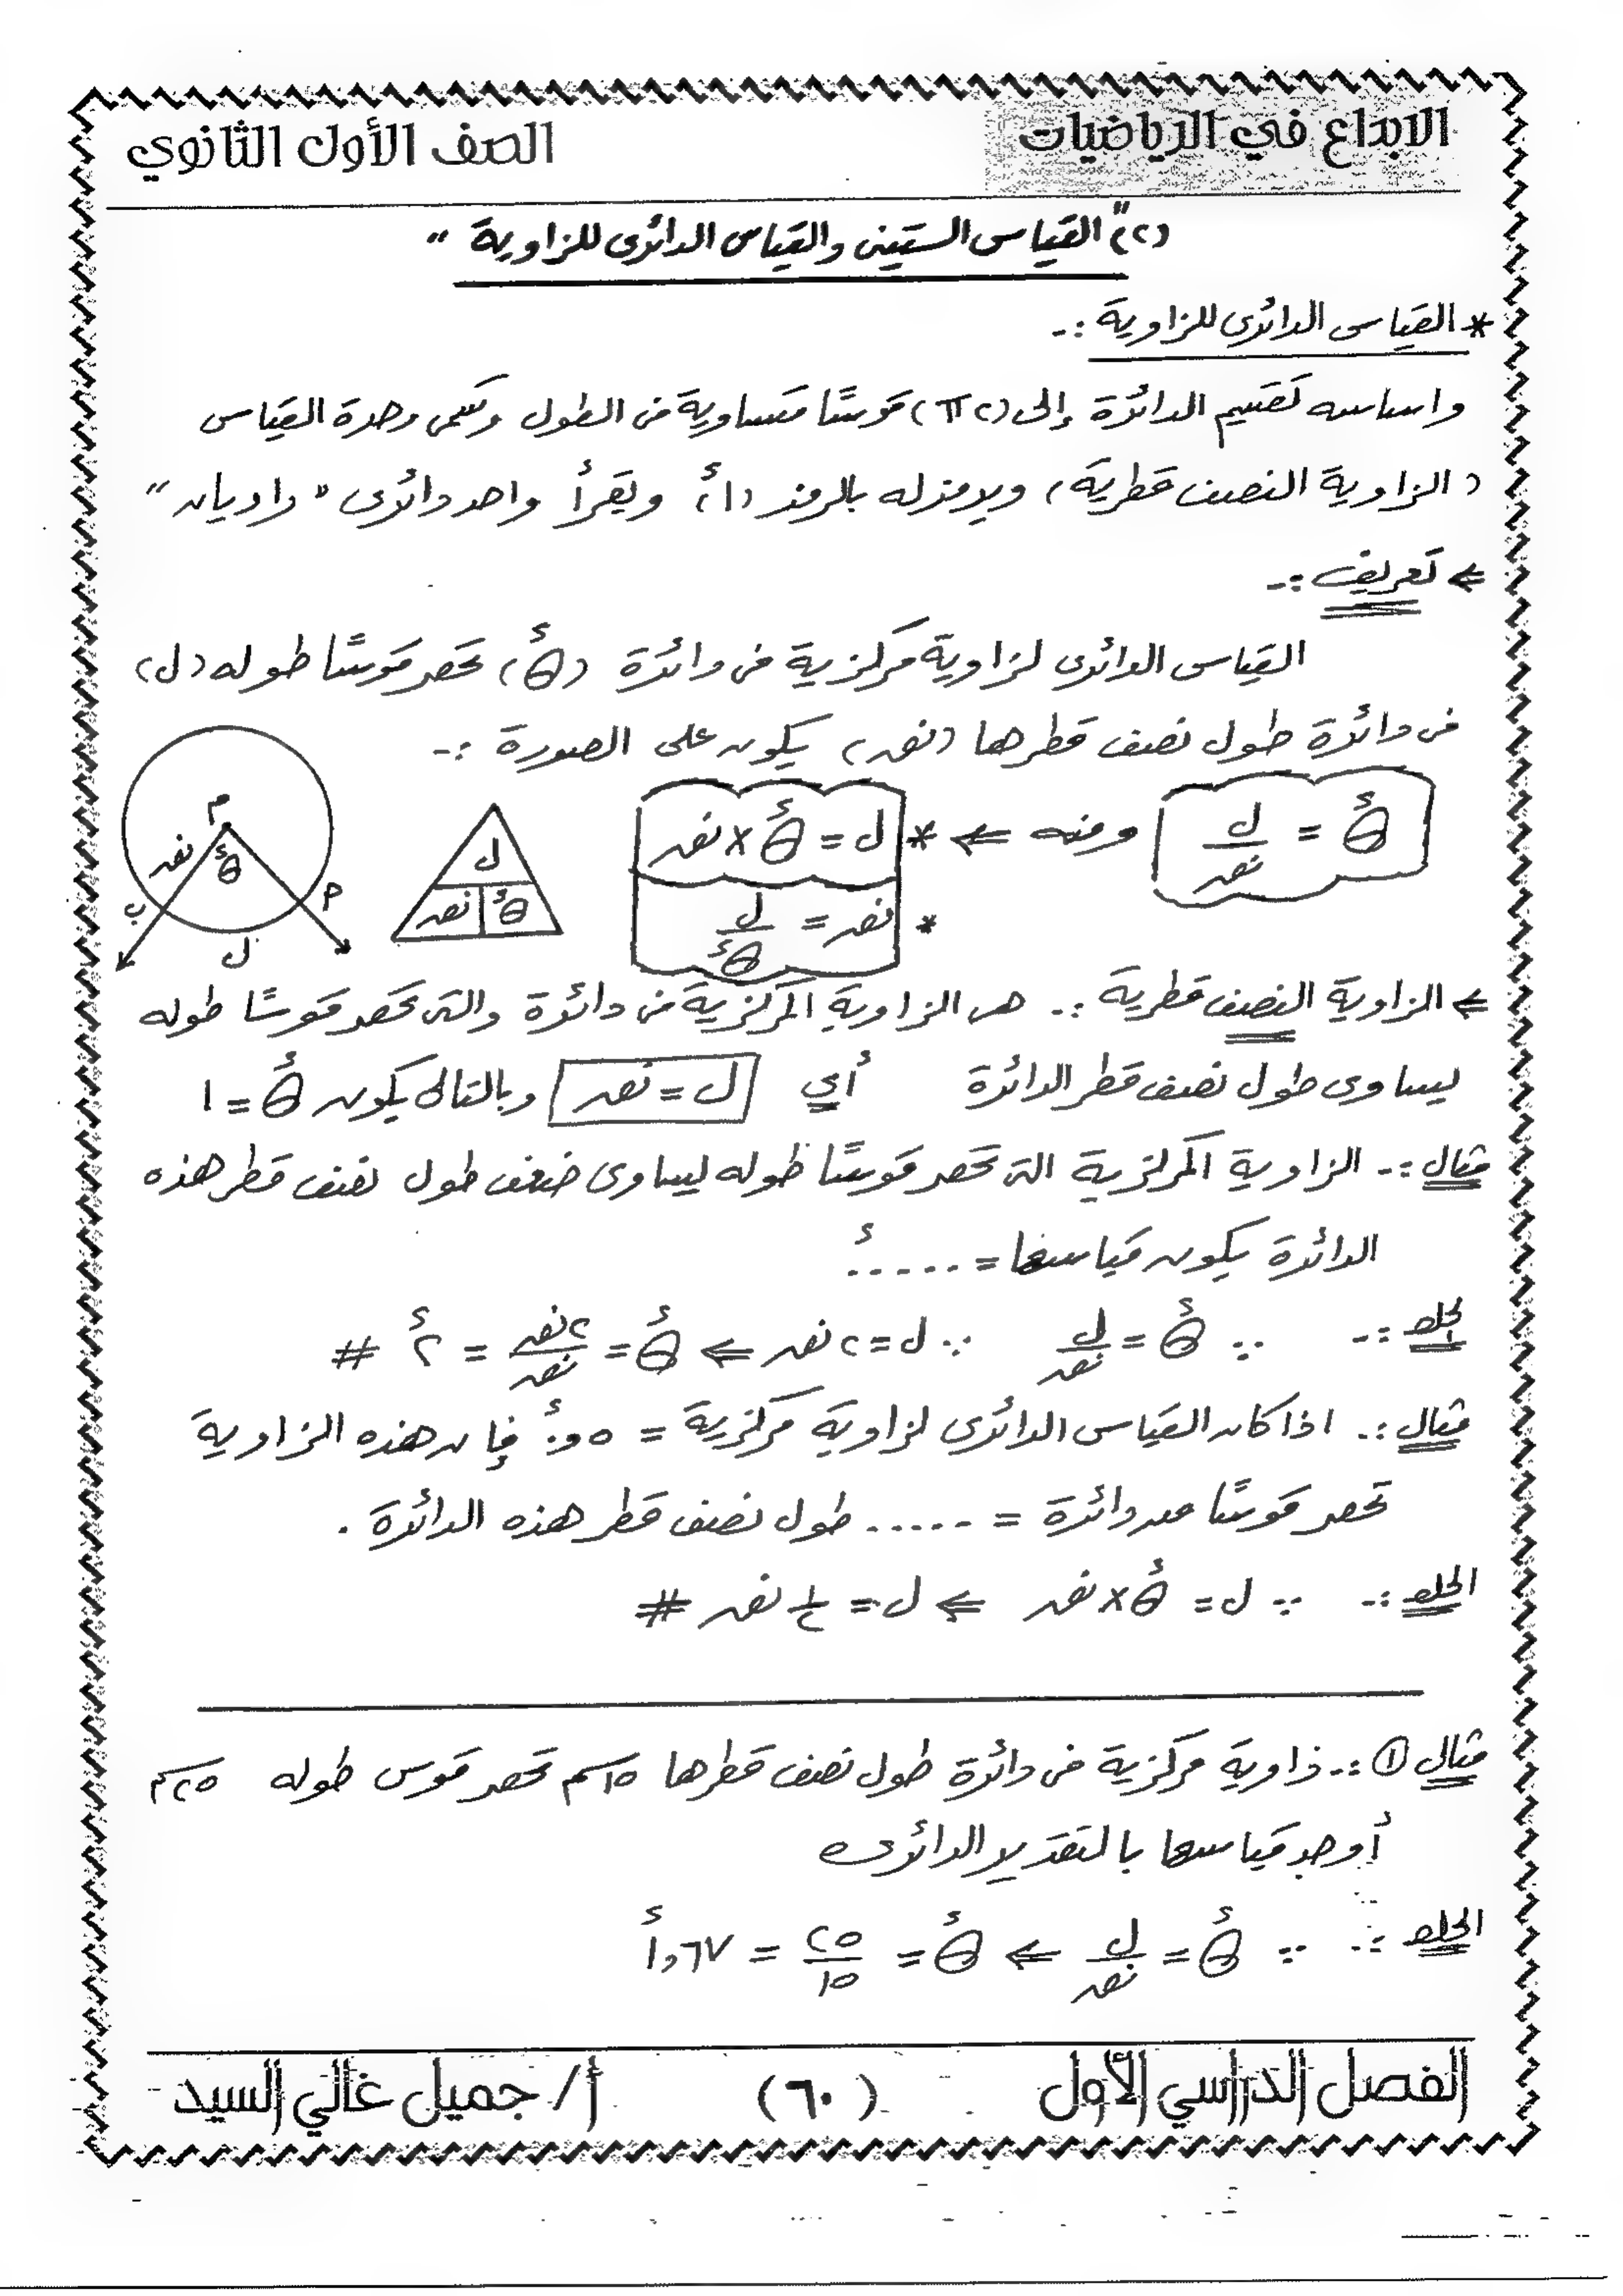 الابداع في الرياضيات
الصف الأول الثانوي
(٢) "القياس الستينى والقياس الدائرى للزاوية"
* القياس الدائرى للزاوية :-
واساسه تقسيم الدائرة إلى (٢π) قوسًا متساوية فى الطول وتسمى وحدة القياس
(الزاوية النصف قطرية) ويرمز له بالرمز (١ء) ويقرأ واحد دائرى "راديان"
⇐ تعريف :-
القياس الدائرى لزاوية مركزية فى دائرة (θء) تحصر قوسًا طوله (ل)
فى دائرة طول نصف قطرها (نق) يكون على الصورة :-
θء = ل/نق ومنه ⇐ * ل = θء × نق
* نق = ل/θء
ل
نق θء
م
نق θء
ب م
ل
⇐ الزاوية النصف قطرية :- هى الزاوية المركزية فى دائرة والتى تحصر قوسًا طوله
يساوى طول نصف قطر الدائرة أي ل = نق وبالتالى يكون θء = ١
مثال :- الزاوية المركزية التى تحصر قوسًا طوله يساوى ضعف طول نصف قطر هذه
الدائرة يكون قياسها = ......ء
الحل :- ∵ θء = ل/نق ∵ ل = ٢ نق ⇐ θء = ٢نق/نق = ٢ء #
مثال :- اذا كان القياس الدائرى لزاوية مركزية = ٠,٥ء فإن هذه الزاوية
تحصر قوسًا من دائرة = ...... طول نصف قطر هذه الدائرة .
الحل :- ∵ ل = θء × نق ⇐ ل = ١/٢ نق #
مثال ① :- زاوية مركزية فى دائرة طول نصف قطرها ١٥سم تحصر قوس طوله ٢٥سم
أوجد قياسها بالتقدير الدائرى
الحل :- ∵ θء = ل/نق ⇐ θء = ٢٥/١٥ = ١,٦٧ء
الفصل الدراسي الأول
(٦٠)
أ/ جميل غالي السيد